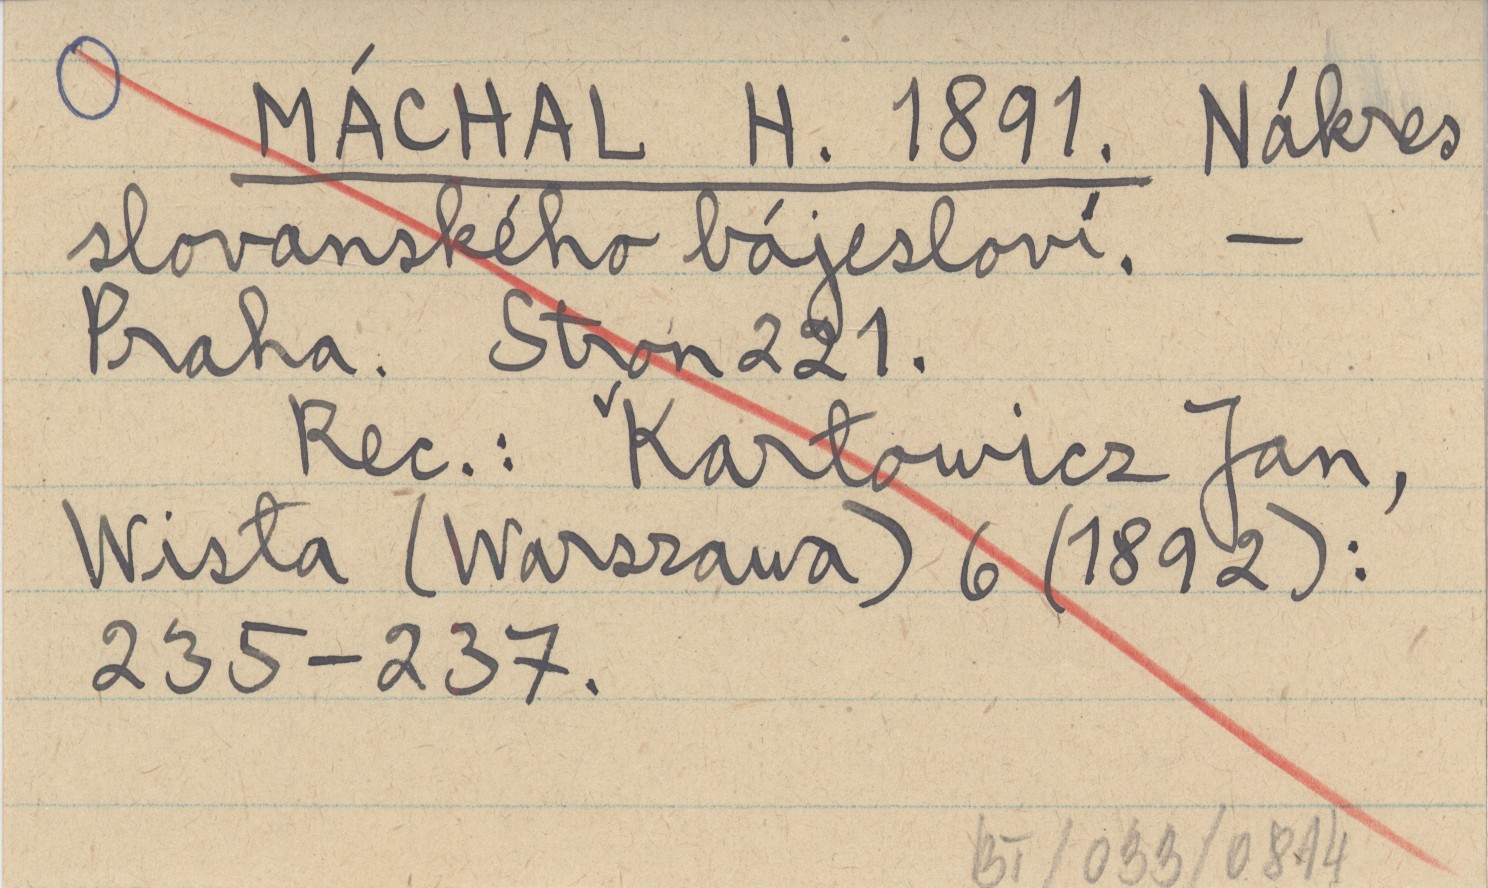 MÁCHAL H. 1891. Nákres
slovanského bájesloví. —
Praha. Stron 221.
Rec.: Karłowicz Jan,
Wisła (Warszawa) 6 (1892):
235-237.
BI/033/0814